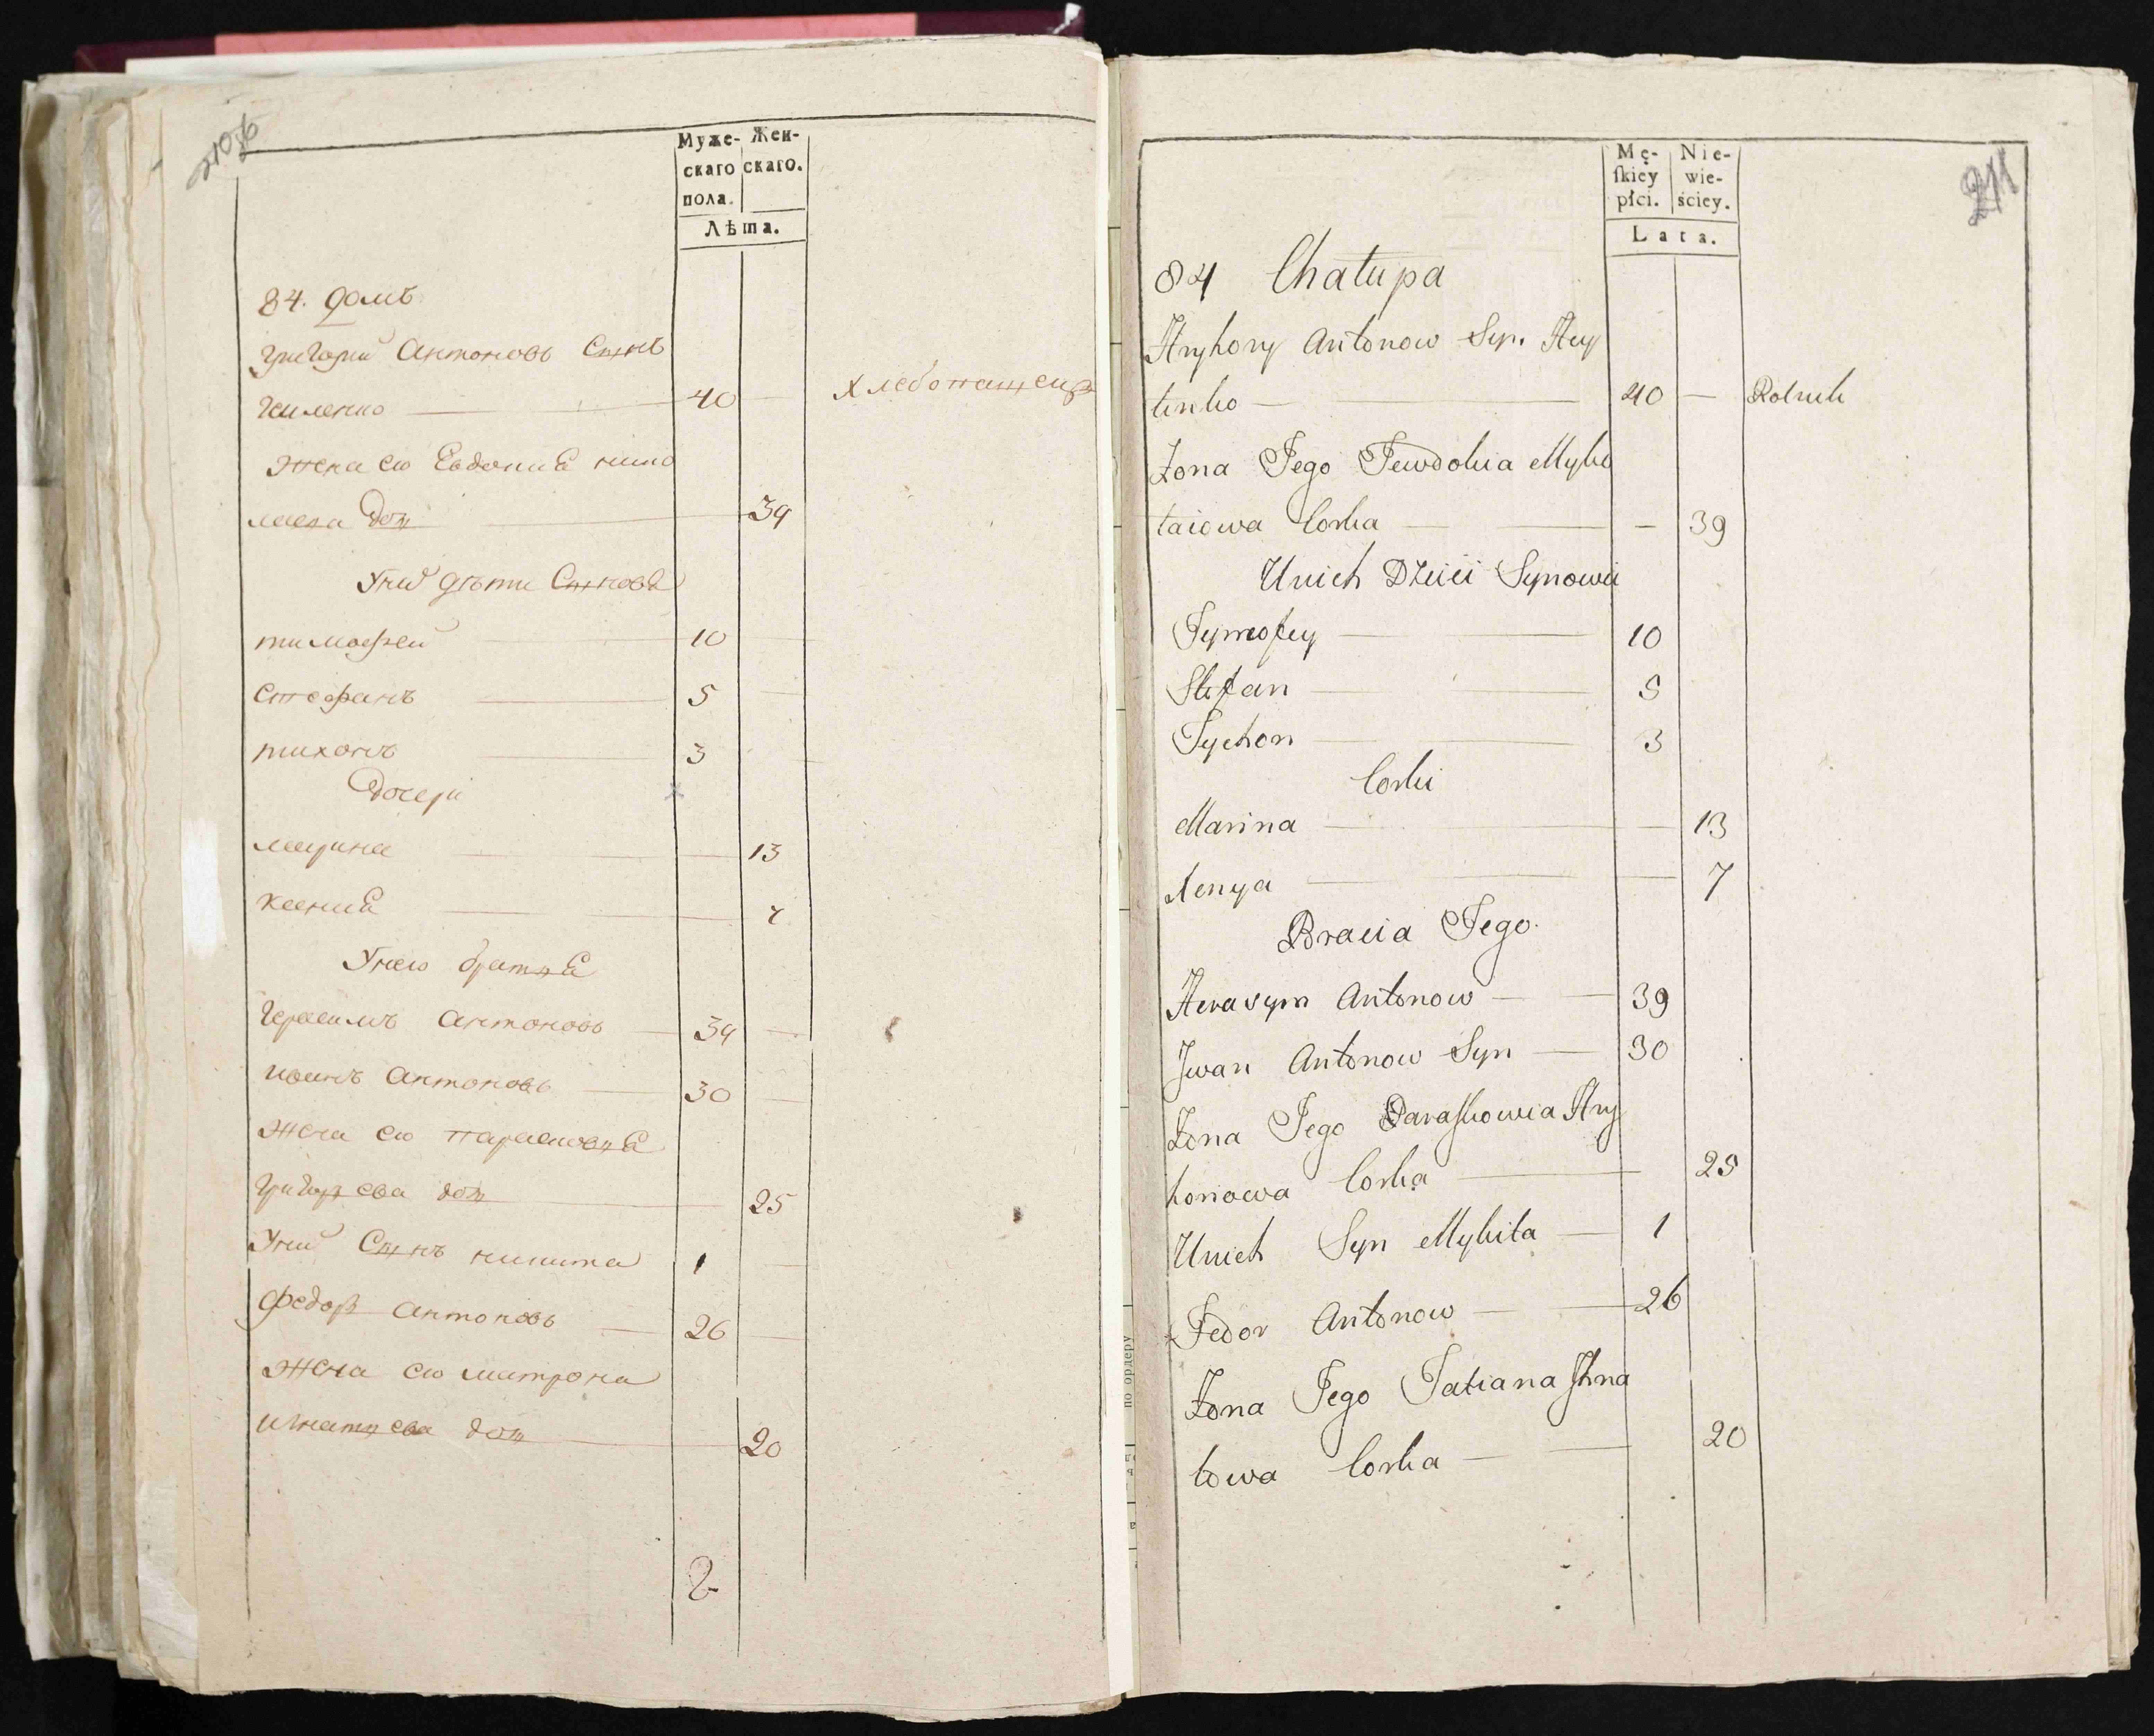 210б
Муже- Жен-
скаго скаго.
пола.
Лѣта.
84. домъ
Григорий Антоновъ Сынъ
Гиленко 40 Хлебопашецъ
Жена ею Евдокия нико
лаева доч 39
Уних дѣти Сыновя
тимофей 10
Стефанъ 5
тихонъ 3
Дочери
марина 13
ксения 7
Унею братья
Герасимъ Антоновъ 39
иванъ Антоновъ 30
Жена ею парасковья
Григорьева доч 25
Уних Сынъ никита 1
Федоръ Антоновъ 26
Жена ею матрона
игнатьева доч 20
211
Mę- Nie-
ſkiey wie-
płci. ściey.
Lata.
84 Chałupa
Hryhory Antonow Syn Hey
lenko 40 — Rolnik
Żona Jego Jewdokia Myko
łaiowa Corka — 39
Unich Dzieci Synowie
Tymofey 10
Stefan 5
Tychon 3
Corki
Marina 13
Xenya 7
Bracia Jego.
Herasym Antonow 39
Jwan Antonow Syn 30
Żona Jego Paraſkowia Hry
horiowa Corka 25
Unich Syn Mykita 1
Fedor Antonow 26
Żona Jego Tatiana Jhna
towa Corka 20